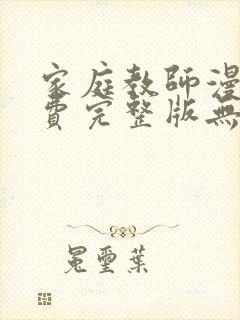 家庭教師漫
費完整版無
冕璽葉